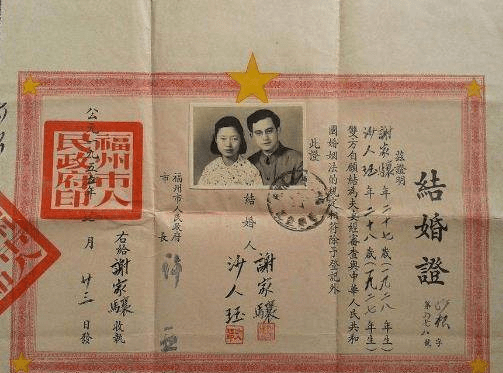 結婚證
字第六七八號
茲證明
謝家驤年二十七歲(一九二八年生)
沙人珏年二十八歲(一九二七年生)
雙方自願結為夫婦經審查與中華人民共和
國婚姻法的規定相符除予登記外
此證
結婚人
謝家驤
沙人珏
福州市人民政府
市長
右給謝家驤收執
公元一九五五年
月廿三日發
福州市人
民政府印